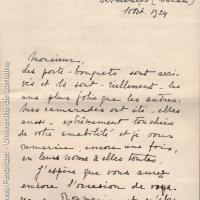 10 oct. 1924
Monsieur,
Les porte-bouquets sont arri-
vés et ils sont - réellement - les
uns plus jolis que les autres.
Mes camarades ont été, elles
aussi, - extrêmement touchées
de votre amabilité et je vous
remercie, encore une fois,
en leurs noms à elles toutes.
J'espère que vous aurez
encore l'occasion de voya-
Université de Lorraine